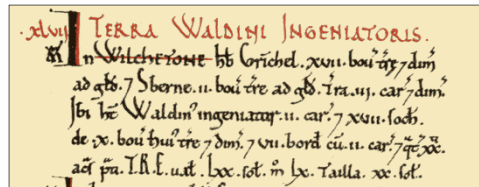 .xlvii. TERRA WALDINI INGENIATORIS.
In WILCHETONE hb̄ Grichel .xvii. bou' tr̄e 7 dim̄
ad gld̄. 7 Sberne .ii. bou' tr̄e ad gld̄. Tr̄a .vi. car' 7 dim̄.
Ibi ht̄ Waldin' ingeniatar .ii. car'. 7 xvii. soch̄.
de .x. bou' hui' tr̄e 7 dim̄. 7 vii. bord̄ cū .ii. car'. 7 q̄t' xx.
ac̄s p̄ti. T.R.E. ual̄ .lxx. sol̄. m̊ lx. Tailla .xx. sol̄.